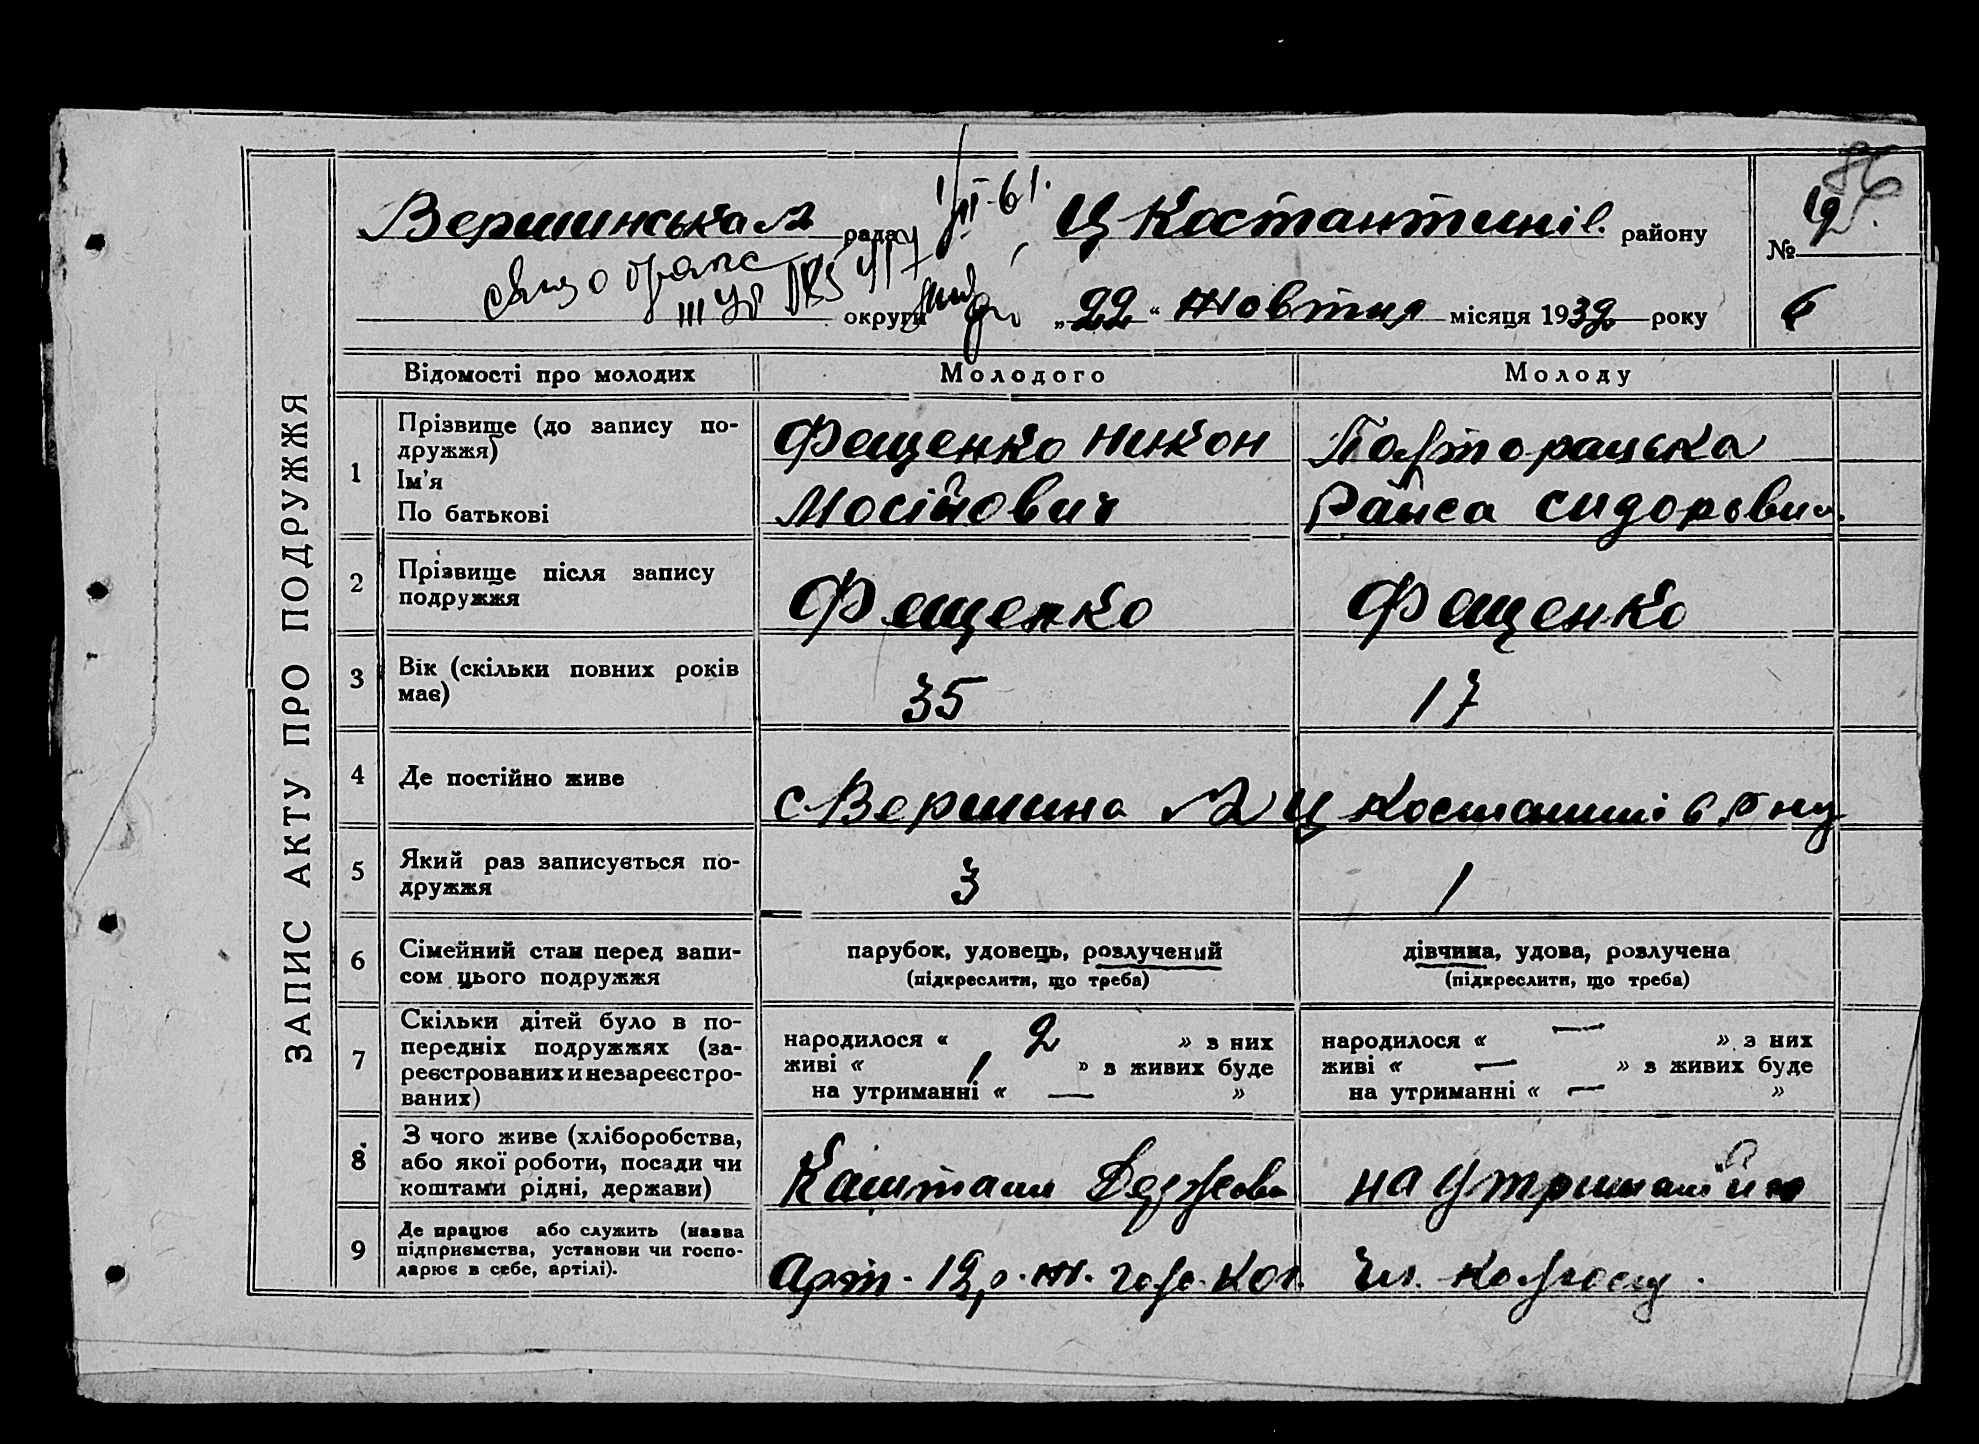 ЗАПИС АКТУ ПРО ПОДРУЖЖЯ
Вершинська рада Ц Костантинів. району
№ 6
округи „22“ Жовтня місяця 1932 року
Відомості про молодих Молодого Молоду
1 Прізвище (до запису по-
дружжя)
Ім'я
По батькові
Фещенко Никон
Мосійович
Полторацька
Раиса Сидоровна
2 Прізвище після запису
подружжя
Фещенко Фещенко
3 Вік (скільки повних років
має)
35 17
4 Де постійно живе
с Вершина Ц Костантинів
5 Який раз записується по-
дружжя
3 1
6 Сімейний стан перед запи-
сом цього подружжя
парубок, удовець, розлучений
(підкреслити, що треба)
дівчина, удова, розлучена
(підкреслити, що треба)
7 Скільки дітей було в по-
передніх подружжях (за-
реєстрованих и незареєстро-
ваних)
народилося « 2 » з них
живі « 1 » з живих буде
на утриманні « — »
народилося « — » з них
живі « — » з живих буде
на утриманні « — »
8 З чого живе (хліборобства,
або якої роботи, посади чи
коштами рідні, держави)
Коштами Держави
на утриманию
9 Де працює або служить (назва
підприємства, установи чи госпо-
дарює в себе, артілі).
Арт. 12
Чл. колгоспу.